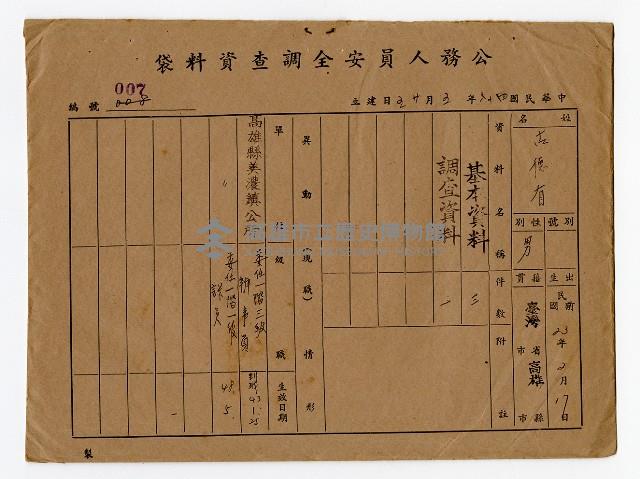 公務人員安全調查資料袋
編號 007
008
中華民國 年 月 日建立
姓名
古德有
別號 性別
男
出生 籍貫
民國前 23年2月17日
臺灣省市 高雄縣市
資料名稱 件數 附註
基本資料 三
調查資料 一
異動(現職)情形
單位 級職 生效日期
高雄縣美濃鎮公所 委任一階三級 辦事員 43.1.25
〃 委任一階一級 課員 48.5.
製
高雄市立歷史博物館